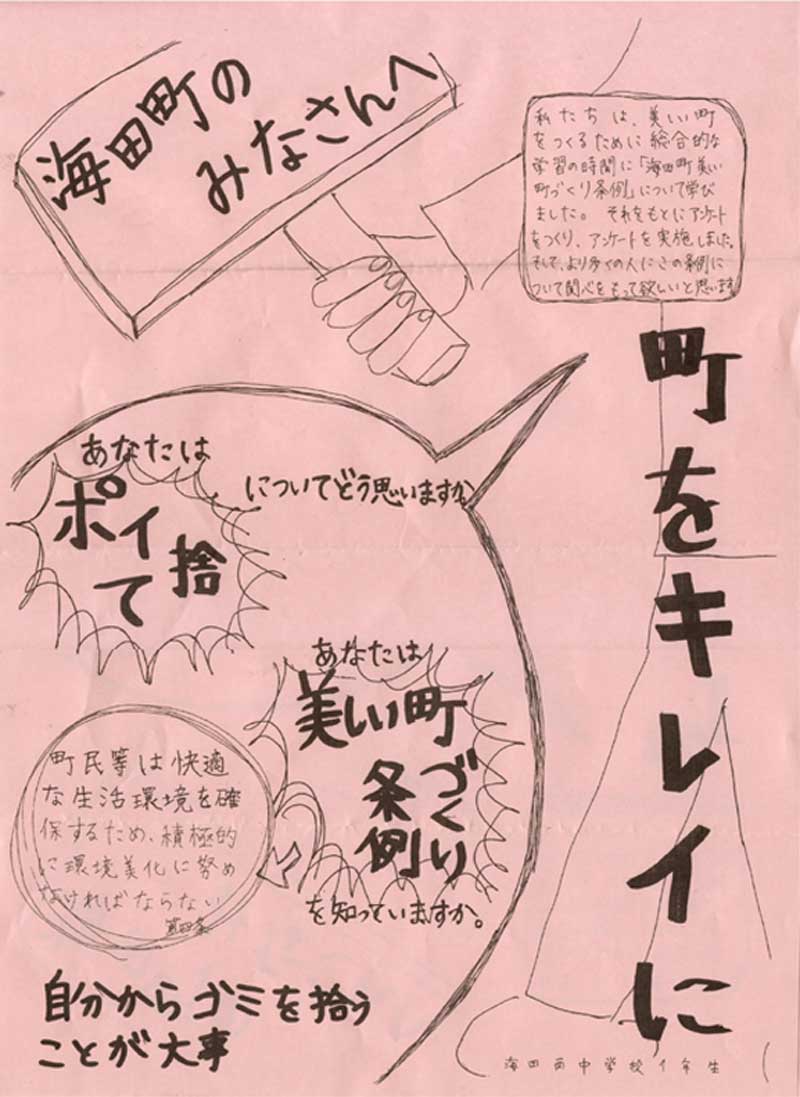 海田町の
みなさんへ
私たちは、美しい町
をつくるために総合的な
学習の時間に「海田町美しい
町づくり条例」について学び
ました。それをもとにアンケート
をつくり、アンケートを実施しました。
そして、より多くの人にこの条例に
ついて関心をもって欲しいと思います
町をキレイに
あなたは
ポイ捨て
についてどう思いますか。
あなたは
美しい町
づくり
条例
を知っていますか。
町民等は快適
な生活環境を確
保するため、積極的
に環境美化に努め
なければならない
第四条
自分からゴミを拾う
ことが大事
海田西中学校1年生